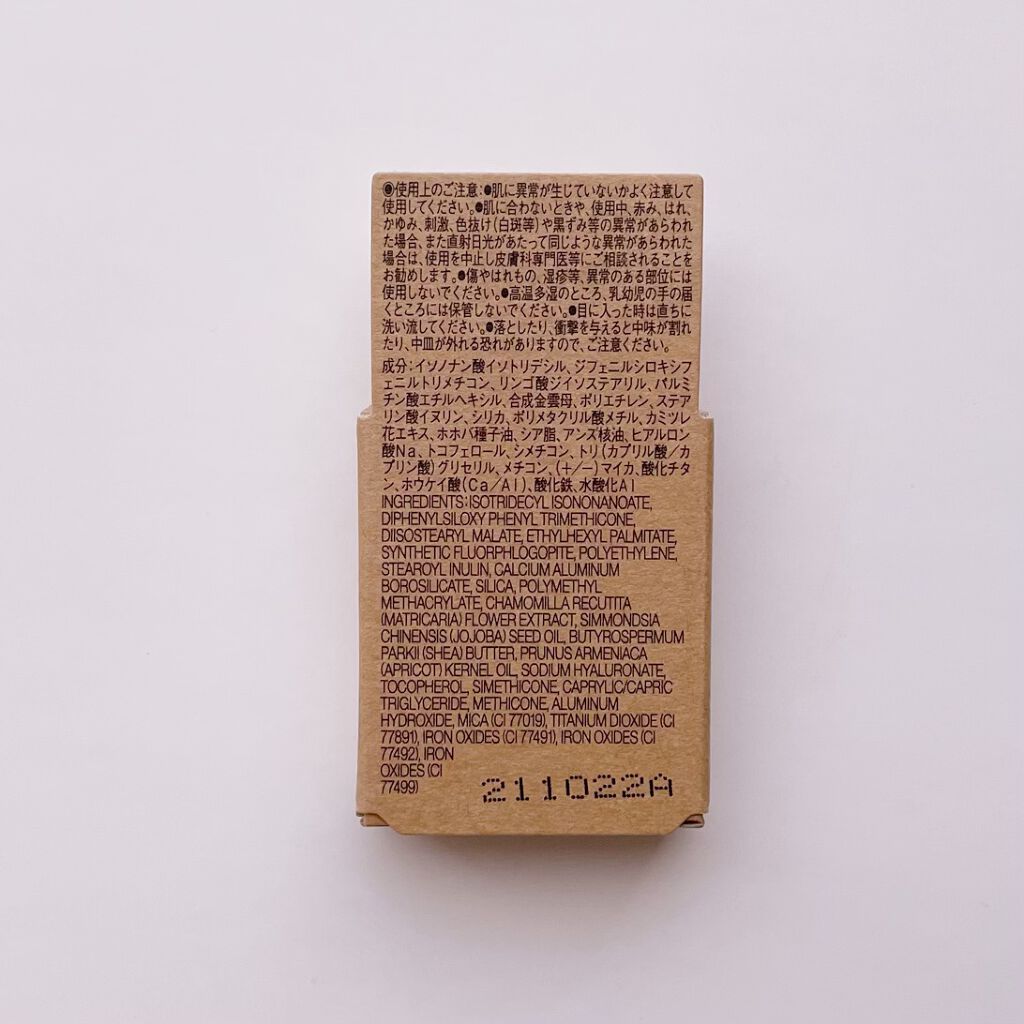 ◉使用上のご注意:●肌に異常が生じていないかよく注意して
使用してください。●肌に合わないときや、使用中、赤み、はれ、
かゆみ、刺激、色抜け(白斑等)や黒ずみ等の異常があらわれ
た場合、また直射日光があたって同じような異常があらわれた
場合は、使用を中止し皮膚科専門医等にご相談されることを
お勧めします。●傷やはれもの、湿疹等、異常のある部位には
使用しないでください。●高温多湿のところ、乳幼児の手の届
くところには保管しないでください。●目に入った時は直ちに
洗い流してください。●落としたり、衝撃を与えると中味が割れ
たり、中皿が外れる恐れがありますので、ご注意ください。
成分:イソノナン酸イソトリデシル、ジフェニルシロキシフ
ェニルトリメチコン、リンゴ酸ジイソステアリル、パルミ
チン酸エチルヘキシル、合成金雲母、ポリエチレン、ステア
リン酸イヌリン、シリカ、ポリメタクリル酸メチル、カミツレ
花エキス、ホホバ種子油、シア脂、アンズ核油、ヒアルロン
酸Na、トコフェロール、シメチコン、トリ(カプリル酸/カ
プリン酸)グリセリル、メチコン、(+/−)マイカ、酸化チタ
ン、ホウケイ酸(Ca/Al)、酸化鉄、水酸化Al
INGREDIENTS:ISOTRIDECYL ISONONANOATE,
DIPHENYLSILOXY PHENYL TRIMETHICONE,
DIISOSTEARYL MALATE, ETHYLHEXYL PALMITATE,
SYNTHETIC FLUORPHLOGOPITE, POLYETHYLENE,
STEAROYL INULIN, CALCIUM ALUMINUM
BOROSILICATE, SILICA, POLYMETHYL
METHACRYLATE, CHAMOMILLA RECUTITA
(MATRICARIA) FLOWER EXTRACT, SIMMONDSIA
CHINENSIS (JOJOBA) SEED OIL, BUTYROSPERMUM
PARKII (SHEA) BUTTER, PRUNUS ARMENIACA
(APRICOT) KERNEL OIL, SODIUM HYALURONATE,
TOCOPHEROL, SIMETHICONE, CAPRYLIC/CAPRIC
TRIGLYCERIDE, METHICONE, ALUMINUM
HYDROXIDE, MICA (CI 77019), TITANIUM DIOXIDE (CI
77891), IRON OXIDES (CI 77491), IRON OXIDES (CI
77492), IRON
OXIDES (CI
77499)
211022A